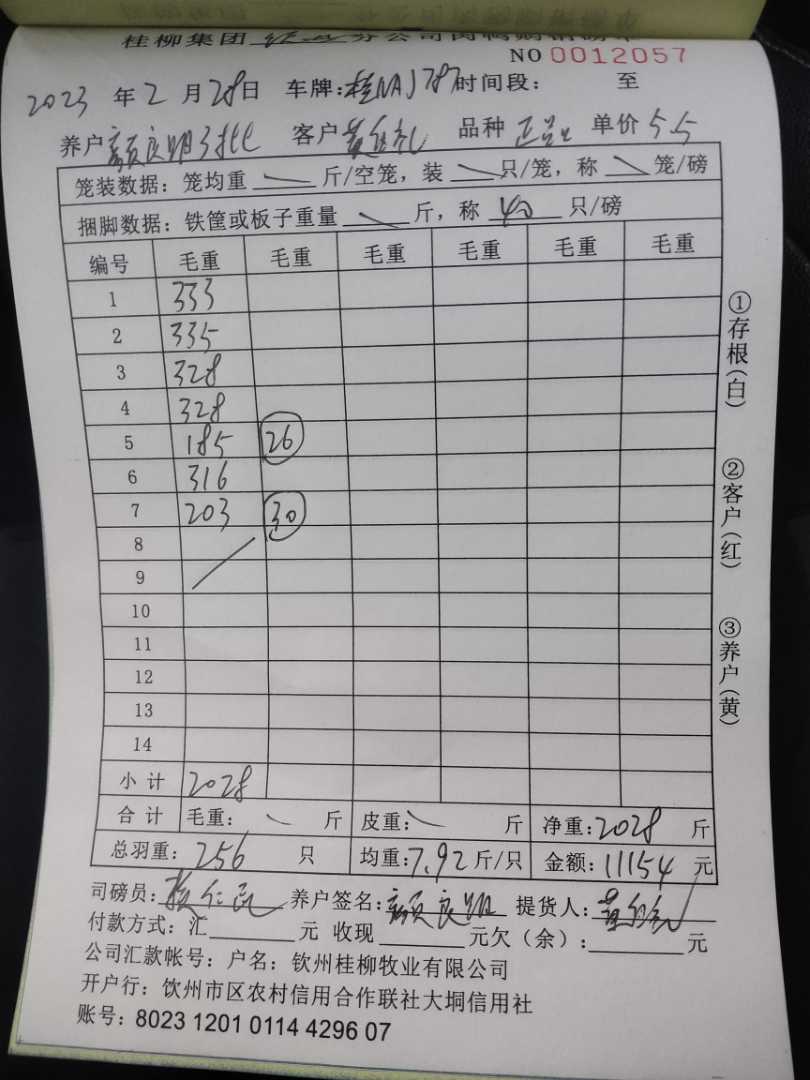 桂柳集团 分公司肉鸭购销磅单
NO 0012057
2023 年 2 月 28 日 车牌:桂NAJ787 时间段: 至
养户 颜良明3批 客户 黄 礼 品种 正品 单价 5.5
笼装数据: 笼均重 斤/空笼, 装 只/笼, 称 笼/磅
捆脚数据: 铁筐或板子重量 斤, 称 40 只/磅
编号 毛重 毛重 毛重 毛重 毛重 毛重
1 333
2 335
3 328
4 328
5 185 26
6 316
7 203 30
8
9
10
11
12
13
14
小计 2028
合计 毛重: 斤 皮重: 斤 净重: 2028 斤
总羽重: 256 只 均重: 7.92 斤/只 金额: 11154 元
司磅员: 养户签名: 颜良明 提货人: 黄 礼
付款方式: 汇 元 收现 元欠(余): 元
公司汇款帐号: 户名: 钦州桂柳牧业有限公司
开户行: 饮州市区农村信用合作联社大垌信用社
账号: 8023 1201 0114 4296 07
①存根(白)
②客户(红)
③养户(黄)